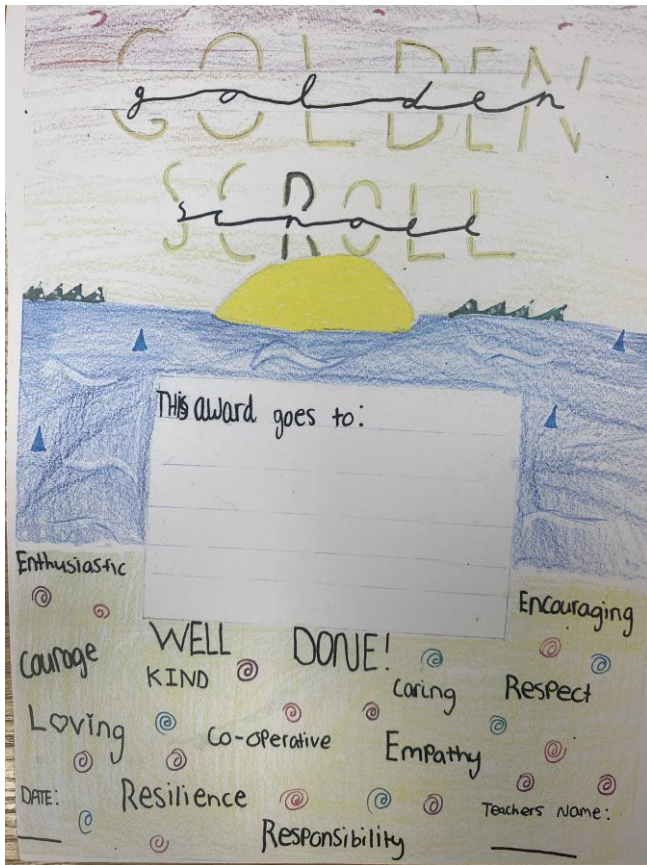 GOLDEN
golden
SCROLL
scroll
This award goes to:
Enthusiastic
Encouraging
WELL DONE!
Courage
KIND
Caring
Respect
Loving
Co-operative
Empathy
DATE:
Resilience
Teachers Name:
Responsibility